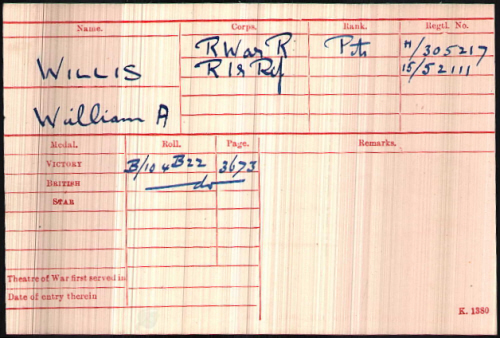 Name. Corps. Rank. Regtl. No.
WILLIS R War R Pte H/305217
William A R Ir Rif 15/52111
Medal. Roll. Page. Remarks.
VICTORY B/104B22 3673
BRITISH do
STAR
Theatre of War first served in
Date of entry therein
K. 1380